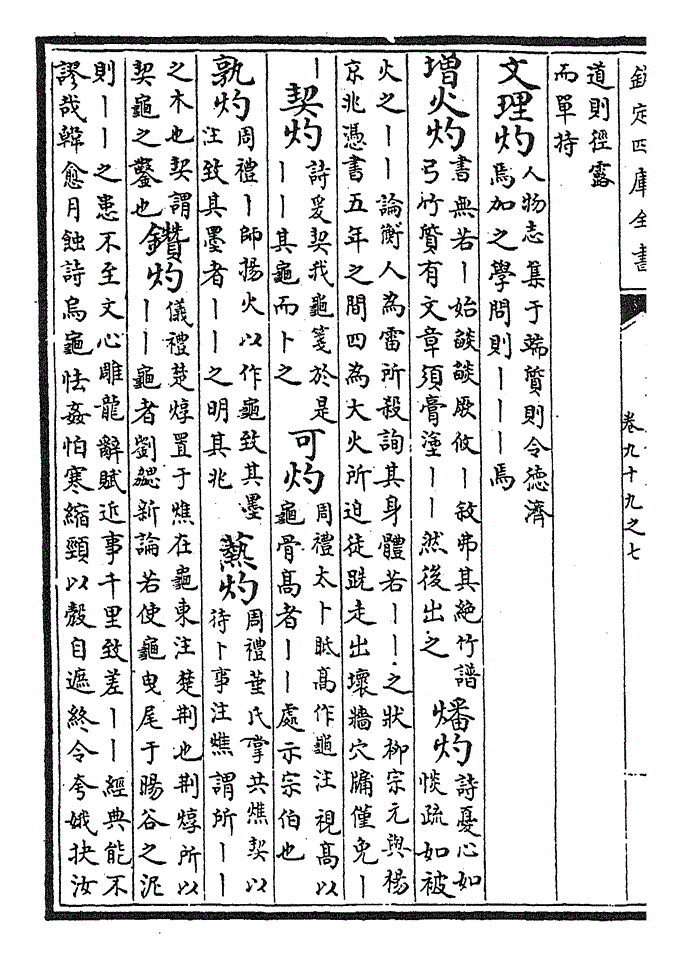 欽定四庫全書 卷九十九之七
道則徑露
而單持
文理灼
人物志集于端質則令徳濟
焉加之學問則丨丨丨焉
增火灼
書無若丨始燄燄厥攸丨敘弗其絶竹譜
弓竹質有文章須膏塗丨丨然後出之
燔灼
詩憂心如
惔疏如被
火之丨丨論衡人為雷所殺詢其身體若丨丨之狀柳宗元與楊
京兆憑書五年之間四為大火所迫徒跣走出壞牆穴牖僅免丨
丨
契灼
詩爰契我龜箋於是
丨丨其龜而卜之
可灼
周禮太卜眡高作龜注視高以
龜骨高者丨丨處示宗伯也
孰灼
周禮丨師揚火以作龜致其墨
注致其墨者丨丨之明其兆
爇灼
周禮菙氏掌共燋契以
待卜事注燋謂所丨丨
之木也契謂
契龜之鑿也
鑽灼
儀禮楚焞置于燋在龜東注楚荆也荆焞所以
丨丨龜者劉勰新論若使龜曳尾于暘谷之泥
則丨丨之患不至文心雕龍辭賦近事千里致差丨丨經典能不
謬哉韓愈月蝕詩烏龜怯姦怕寒縮頸以殼自遮終令夸娥抉汝